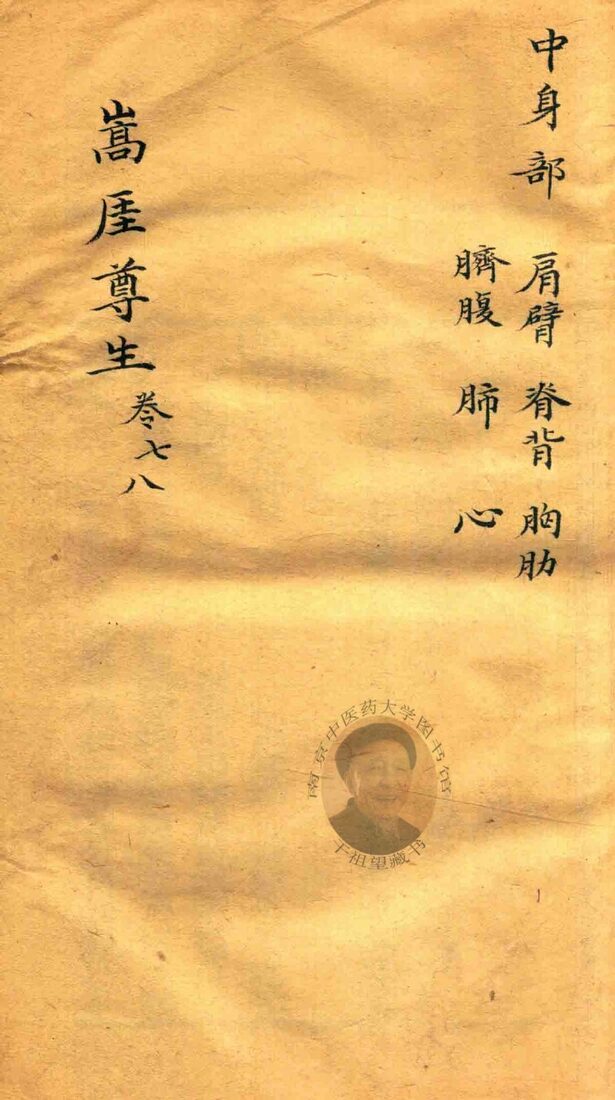 中身部 肩臂 脊背 胸肋
臍腹 肺 心
嵩厓尊生 卷七八
南京中医药大学图书馆
干祖望藏书